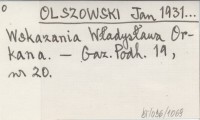 o
OLSZOWSKI Jan 1931...
Wskazania Władysława Or-
kana. – Gaz. Podh. 19,
nr 20.